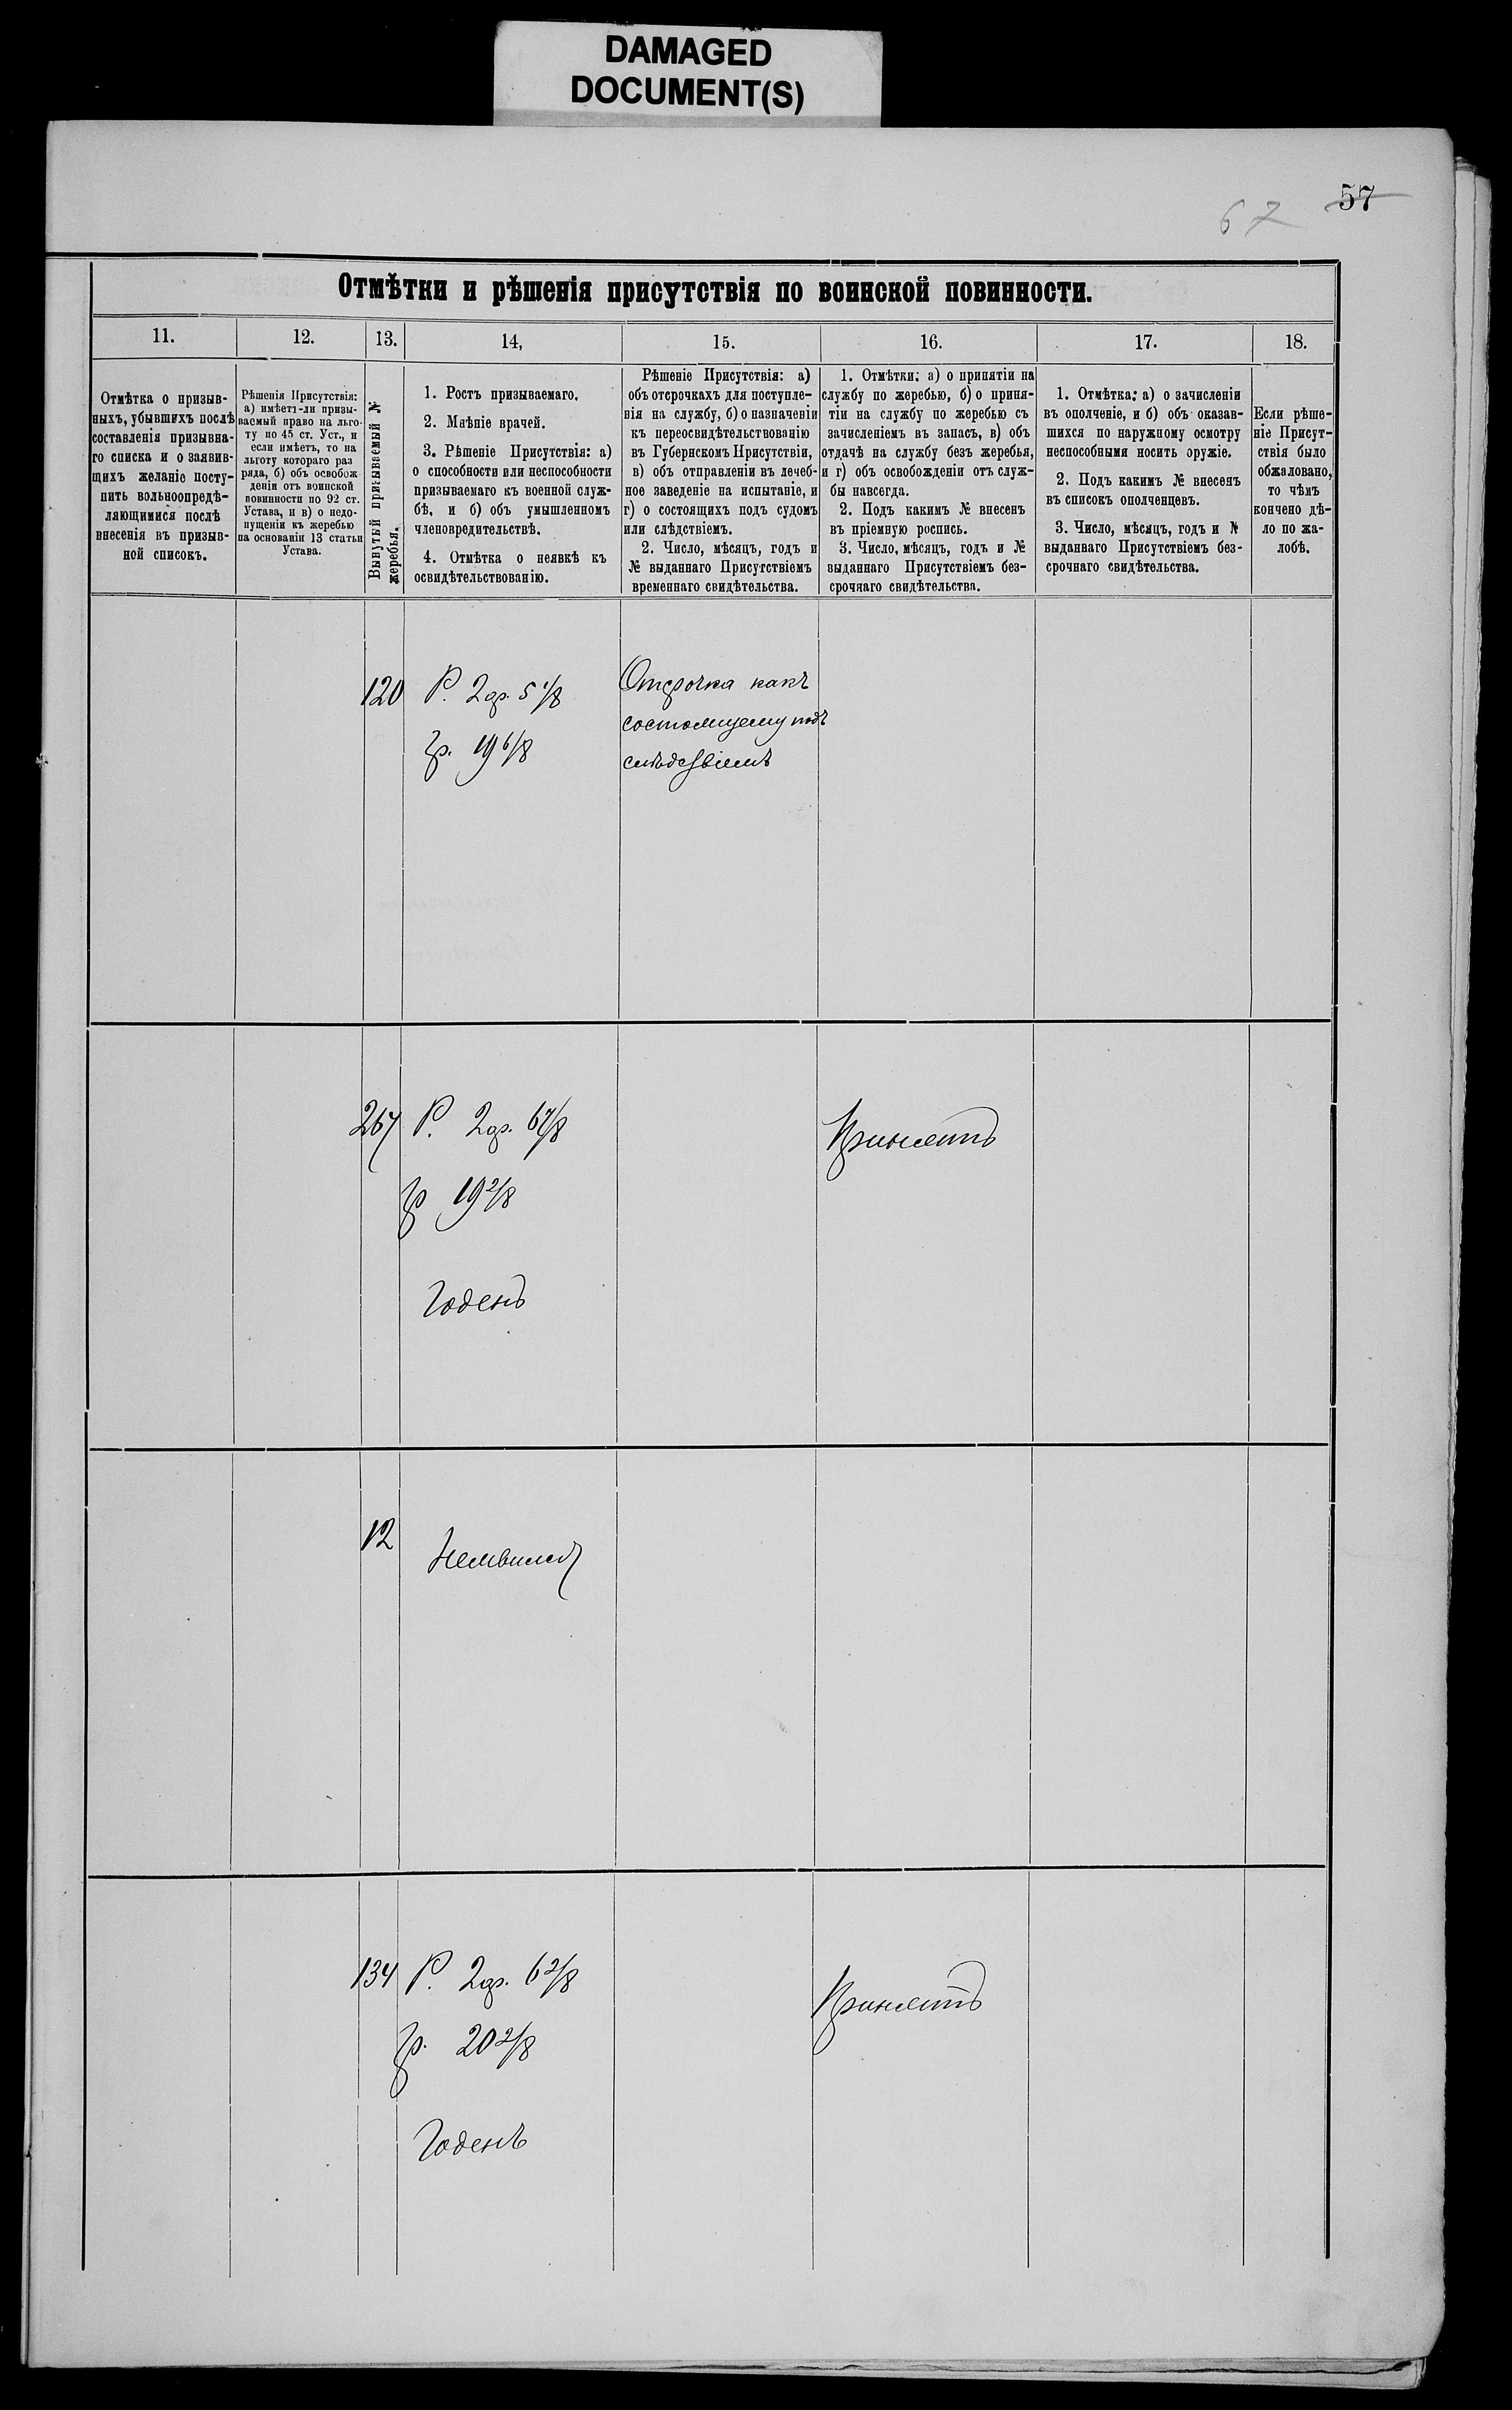 DAMAGED
DOCUMENT(S)
67 57
Отмѣтки и рѣшенія присутствія по воинской повинности.
11. 12. 13. 14, 15. 16. 17. 18.
Отмѣтка о призыв-
ныхъ, убывшихъ послѣ
составленія призывна-
го списка и о заявив-
щихъ желаніе посту-
пить вольноопредѣ-
ляющимися послѣ
внесенія въ призыв-
ной списокъ.
Рѣшенія Присутствія:
а) имѣетъ-ли призы-
ваемый право на льго-
ту по 45 ст. Уст., и
если имѣетъ, то на
льготу котораго раз
ряда, б) объ освобож
деніи отъ воинской
повинности по 92 ст.
Устава, и в) о недо-
пущеніи къ жеребью
на основаніи 13 статьи
Устава.
Вынутый призываемый №
жеребья.
1. Ростъ призываемаго.
2. Мнѣніе врачей.
3. Рѣшеніе Присутствія: а)
о способности или неспособности
призываемаго къ военной служ-
бѣ, и б) объ умышленномъ
членовредительствѣ.
4. Отмѣтка о неявкѣ къ
освидѣтельствованію.
Рѣшеніе Присутствія: а)
объ отсрочкахъ для поступле-
нія на службу, б) о назначеніи
къ переосвидѣтельствованію
въ Губернскомъ Присутствіи,
в) объ отправленіи въ лечеб-
ное заведеніе на испытаніе, и
г) о состоящихъ подъ судомъ
или слѣдствіемъ.
2. Число, мѣсяцъ, годъ и
№ выданнаго Присутствіемъ
временнаго свидѣтельства.
1. Отмѣтки: а) о принятіи на
службу по жеребью, б) о приня-
тіи на службу по жеребью съ
зачисленіемъ въ запасъ, в) объ
отдачѣ на службу безъ жеребья,
и г) объ освобожденіи отъ служ-
бы навсегда.
2. Подъ какимъ № внесенъ
въ пріемную роспись.
3. Число, мѣсяцъ, годъ и №
выданнаго Присутствіемъ без-
срочнаго свидѣтельства.
1. Отмѣтка: а) о зачисленіи
въ ополченіе, и б) объ оказав-
шихся по наружному осмотру
неспособными носить оружіе.
2. Подъ какимъ № внесенъ
въ списокъ ополченцевъ.
3. Число, мѣсяцъ, годъ и №
выданнаго Присутствіемъ без-
срочнаго свидѣтельства.
Если рѣше-
ніе Присут-
ствія было
обжаловано,
то чѣмъ
кончено дѣ-
ло по жа-
лобѣ.
120 Р. 2 ар. 5 1/8
гр. 19 6/8
Отсрочка какъ
состоящему подъ
слѣдствіемъ
267 Р. 2 ар. 6 7/8
гр 19 2/8
Годенъ
Принятъ
12 Неявился
134 Р. 2 ар. 6 2/8
гр. 20 2/8
Годенъ
Принятъ